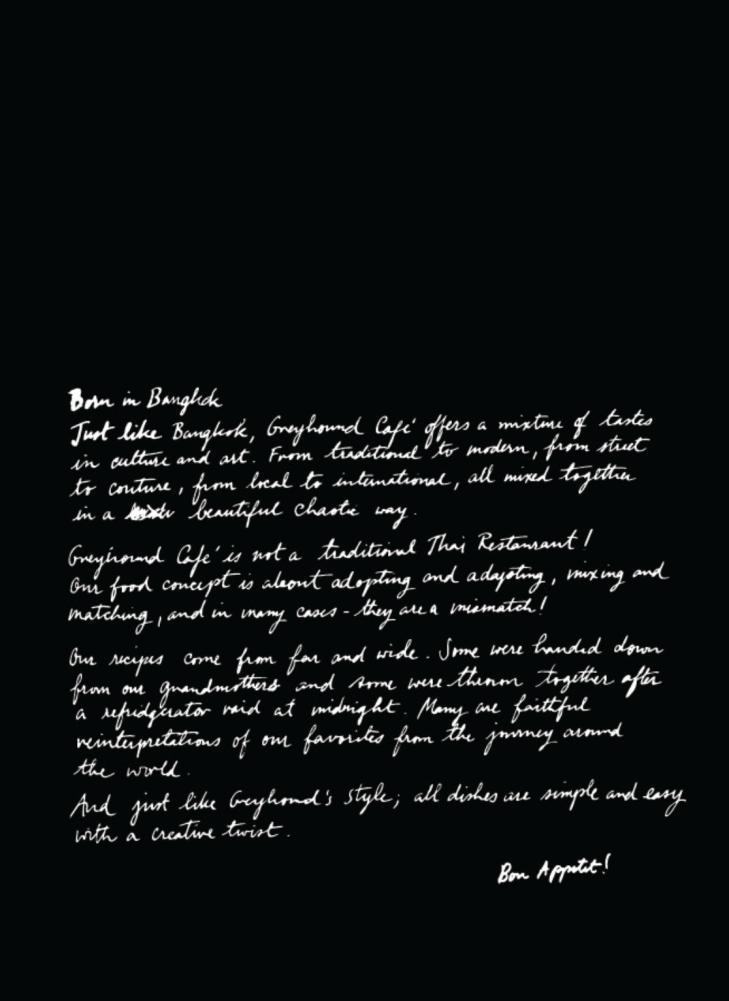 Born in Bangkok
Just like Bangkok, Greyhound Café offers a mixture of tastes
in culture and art. From traditional to modern, from street
to couture, from local to international, all mixed together
in a beautiful chaotic way.
Greyhound Café is not a traditional Thai Restaurant!
Our food concept is about adopting and adapting, mixing and
matching, and in many cases - they are a mismatch!
Our recipes come from far and wide. Some were handed down
from our grandmothers and some were thrown together after
a refridgerator raid at midnight. Many are faithful
reinterpretations of our favorites from the journey around
the world.
And just like Greyhound's style; all dishes are simple and easy
with a creative twist.
Bon Appetit!